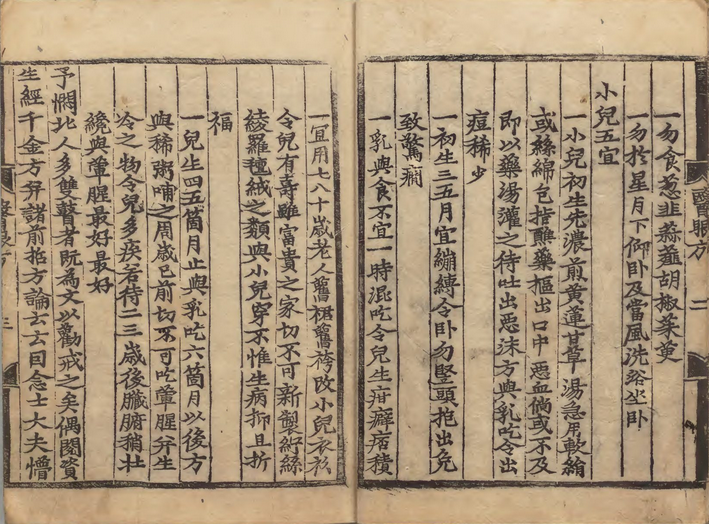 醫眼方 二
一勿食葱韮蒜薤胡椒菜茰
一勿於星月下仰卧及當風洗浴坐卧
小兒五宜
一小兒初生先濃煎黃蓮甘草湯急用軟絹
或絲綿包指蘸藥樞出口中惡血倘或不及
即以藥湯灌之待吐出惡沫方與乳吃令出
痘稀少
一初生三五月宜繃縛令卧勿竪頭抱出免
致驚癎
一乳與食不宜一時混吃令兒生疳癖痞積
一宜用七八十歲老人舊裙舊袴改小兒衣衫
令兒有壽雖富貴之家切不可新製紵絲
綾羅氊絨之類與小兒穿不惟生病抑且折
福
一兒生四五箇月止與乳吃六箇月以後方
與稀粥哺之周歲已前切不可吃葷腥并生
冷之物令兒多疾若待二三歲後臟腑稍壯
纔與葷腥最好最好
予憫此人多雙瞽者既為文以勸戒之矣偶閱資
生經千金方并諸前方論云云因念士大夫懵